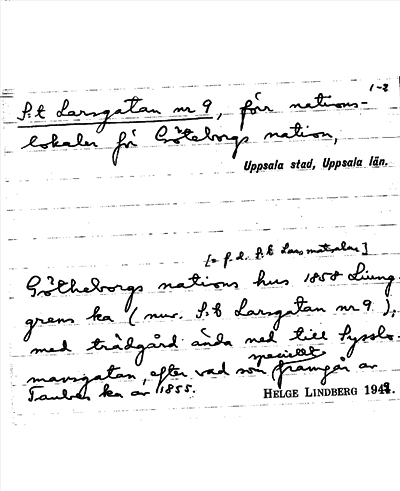 1-2
S:t Larsgatan nr 9, förr nations-
lokaler för Göteborgs nation,
Uppsala stad, Uppsala län.
[= f.d. S:t Lars matsalar]
Götheborgs nations hus 1858 Ljung-
grens ka (nuv. S:t Larsgatan nr 9),
med trädgård ända ned till Sysslo-
mansgatan, efter vad som speciellt framgår av
Taubes ka av 1855.
HELGE LINDBERG 1942.